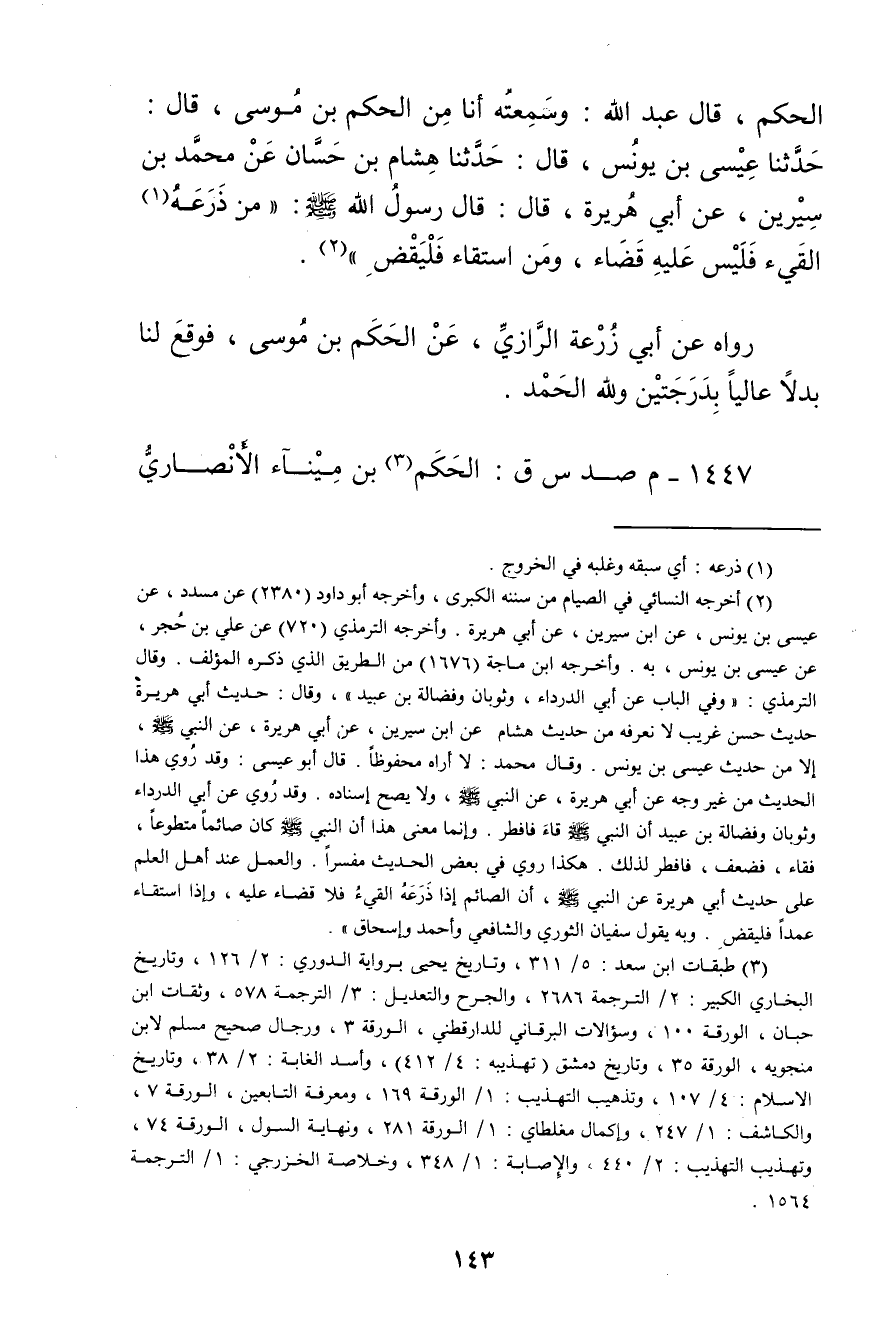 الحكم ، قال عبد الله : وسَمِعتُه أنا مِن الحكم بن مُـوسى ، قال :
حَدَّثنا عِيْسى بن يونُس ، قال : حَدَّثنا هِشام بن حَسَّان عَنْ محمَّد بن
سِيْرين ، عن أبي هُريرة ، قال : قال رسولُ الله ﷺ : « من ذَرَعَـهُ(١)
القَيء فَلَيْس عَليهِ قَضَاء ، ومَن استقاء فَلْيَقْضِ »(٢) .
رواه عن أبي زُرْعة الرَّازيِّ ، عَنْ الحَكَم بن مُوسى ، فوقعَ لنا
بدلًا عالياً بِدَرَجَتَيْن ولله الحَمْد .
١٤٤٧ - م صـد س ق : الحَكَم(٣) بن مِـيْنـآء الأَنْصـاريُّ
(١) ذرعه : أي سبقه وغلبه في الخروج .
(٢) أخرجه النسائي في الصيام من سننه الكبرى ، وأخرجه أبو داود (٢٣٨٠) عن مسدد ، عن
عيسى بن يونس ، عن ابن سيرين ، عن أبي هريرة . وأخرجه الترمذي (٧٢٠) عن علي بن حُجر ،
عن عيسى بن يونس ، به . وأخـرجه ابن مـاجة (١٦٧٦) من الـطريق الذي ذكـره المؤلف . وقال
الترمذي : « وفي الباب عن أبي الدرداء ، وثوبان وفضالة بن عبيد » ، وقال : حـديث أبي هريـرة
حديث حسن غريب لا نعرفه من حديث هشام عن ابن سيرين ، عن أبي هريرة ، عن النبي ﷺ ،
إلا من حديث عيسى بن يونس . وقـال محمد : لا أراه محفوظاً . قال أبو عيسى : وقد رُوي هذا
الحديث من غير وجه عن أبي هريرة ، عن النبي ﷺ ، ولا يصح إسناده . وقد رُوي عن أبي الدرداء
وثوبان وفضالة بن عبيد أن النبي ﷺ قاءَ فافطر . وإنما معنى هذا أن النبي ﷺ كان صائماً متطوعاً ،
فقاء ، فضعف ، فافطر لذلك . هكذا روي في بعض الحـديث مفسراً . والعمل عند أهـل العلم
على حديث أبي هريرة عن النبي ﷺ ، أن الصائم إذا ذَرَعَهُ القيءُ فلا قضـاء عليه ، وإذا استقـاء
عمداً فليقضِ . وبه يقول سفيان الثوري والشافعي وأحمد وإسحاق » .
(٣) طبقـات ابن سعد : ٥/ ٣١١ ، وتـاريخ يحيى بـرواية الـدوري : ٢/ ١٢٦ ، وتاريـخ
البخاري الكبير : ٢/ التـرجمة ٢٦٨٦ ، والجرح والتعديـل : ٣/ الترجمة ٥٧٨ ، وثقـات ابن
حبـان ، الورقـة ١٠٠ ، وسؤالات البرقـاني للدارقطني ، الـورقة ٣ ، ورجـال صحيح مسلم لابن
منجويه ، الورقة ٣٥ ، وتاريخ دمشق ( تهـذيبه : ٤/ ٤١٢) ، وأسـد الغابـة : ٢/ ٣٨ ، وتاريـخ
الاسـلام : ٤/ ١٠٧ ، وتذهيب التهـذيب : ١/ الورقة ١٦٩ ، ومعرفـة التـابعين ، الـورقـة ٧ ،
والكـاشف : ١/ ٢٤٧ ، وإكمال مغلطاي : ١/ الـورقة ٢٨١ ، ونهـاية السول ، الـورقـة ٧٤ ،
وتهـذيب التهذيب : ٢/ ٤٤٠ ، والإصابـة : ١/ ٣٤٨ ، وخـلاصـة الخـزرجي : ١/ التـرجمـة
١٥٦٤ .
١٤٣